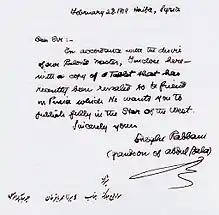 February 28. 1919 Haifa, Syria
Dear Sir:
In accordance with the desire
of our beloved Master, I enclose here-
with a copy of a Tablet that has
recently been revealed to be friend
in Persia which He wants you to
publish fully in the Star of the West.
Sincerely yours
Shoghi Rabbani
(grandson of Abdul Baha)